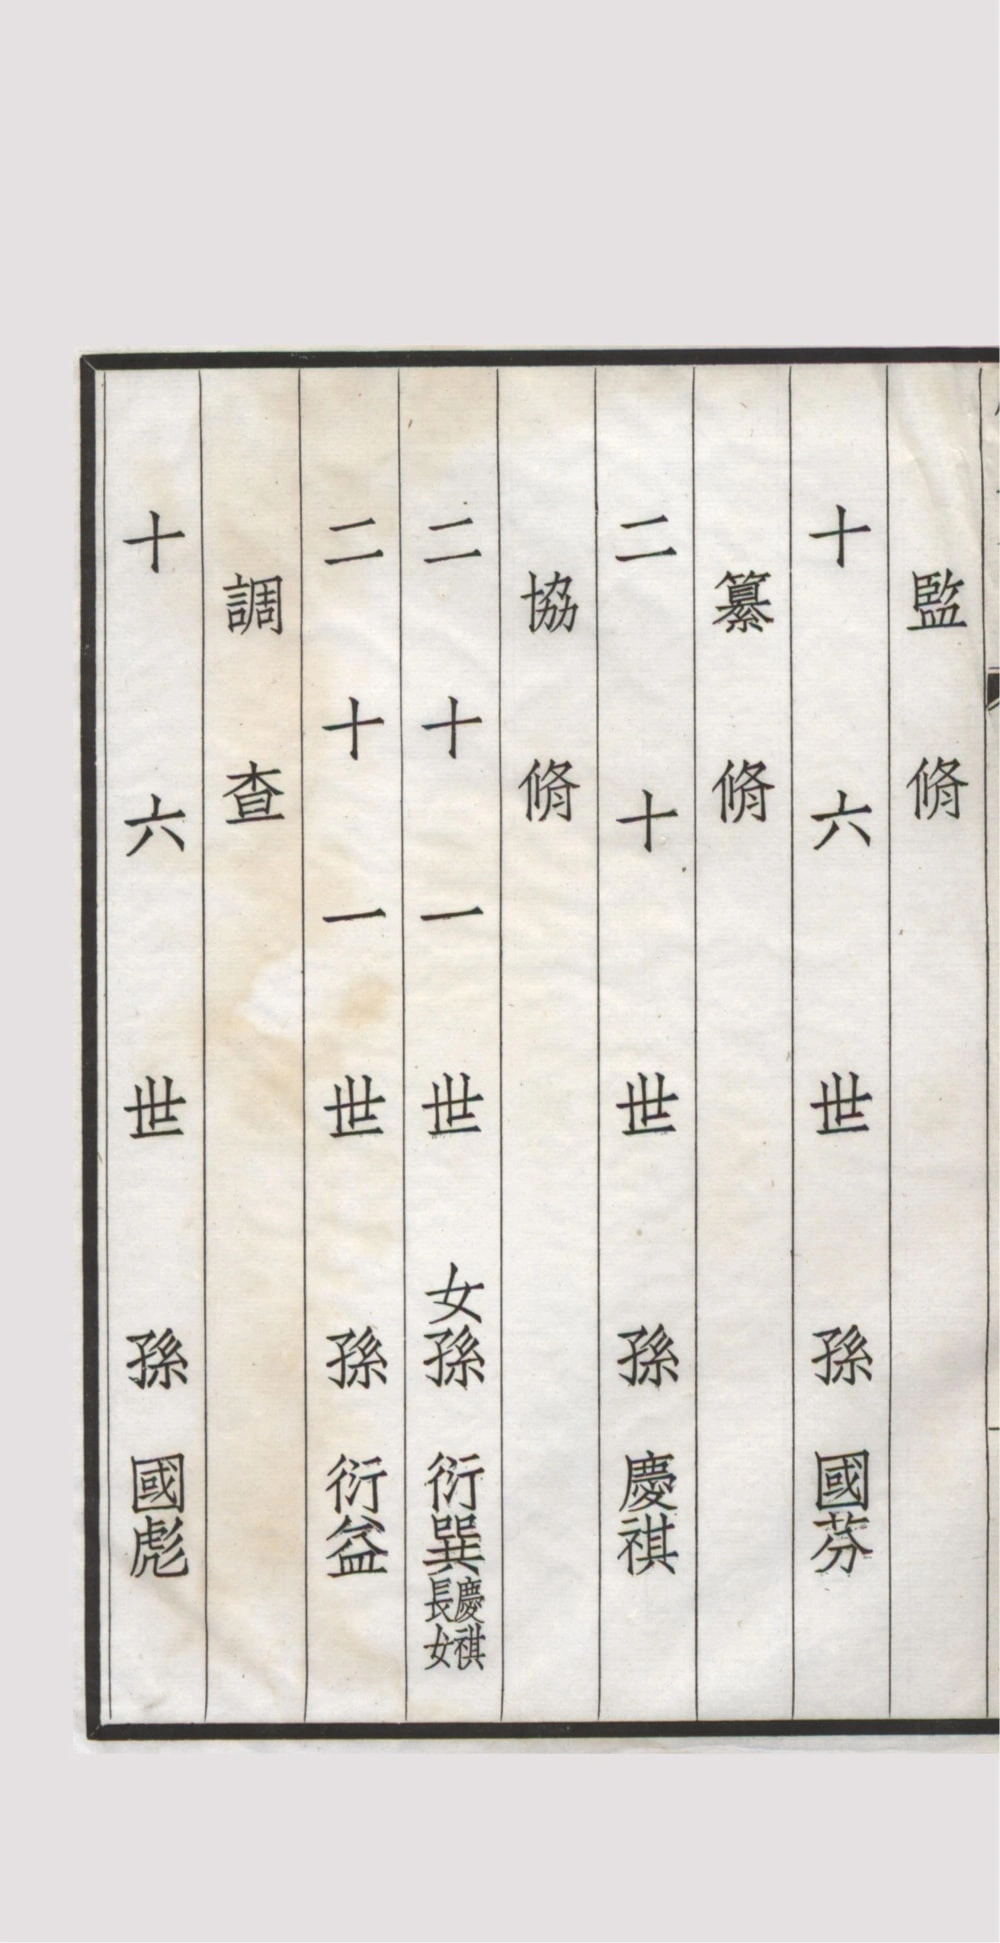 監脩
十六世孫國芬
纂脩
二十世孫慶祺
協脩
二十一世女孫衍巽慶祺長女
二十一世孫衍益
調查
十六世孫國彪